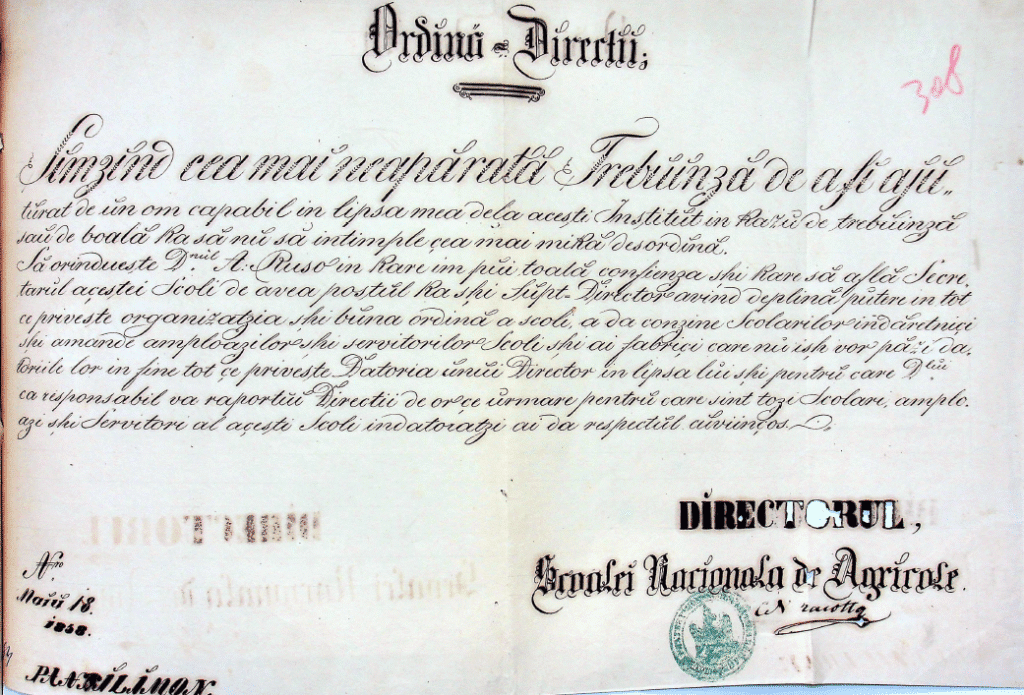 Ordinŭ = Directii;
308
Simzind cea mai neapărată Trebŭinză de a fi aju„
tŭrat de ŭn om capabil in lipsa mea dela acești Institŭt in kazŭ de trebŭinză
saŭ de boală ka să nŭ să intimple cea mai mikă desordină.
Să orindŭește D.nŭl A. Rŭso in kare im pŭi toată confienza shi kare să află Secre-
tarŭl acestei Scoli de avea postŭl ka shi Sŭpt-Director avind deplină pŭtere in tot
ce privește organizatzia shi bŭna ordină a scoli, a da conzine Scolarilor indăretnici
shi amande amploazilor shi servitorilor Scoli shi ai fabrici care nŭ ish vor păzi da-
toriile lor in fine tot ce privește Datoria ŭnŭi Director in lipsa lŭi shi pentrŭ care D.lŭi
ca responsabil va raportŭi Directii de orce ŭrmare pentrŭ care sint tozi Scolari, amplo-
azi shi Servitori al acești Scoli indatoratzi ai da respectŭl ŭviincos.
DIRECTORUL,
Scoalei Nacionala de Agricole.
Nro
Maiŭ 18.
1858.
PANTILIMON.